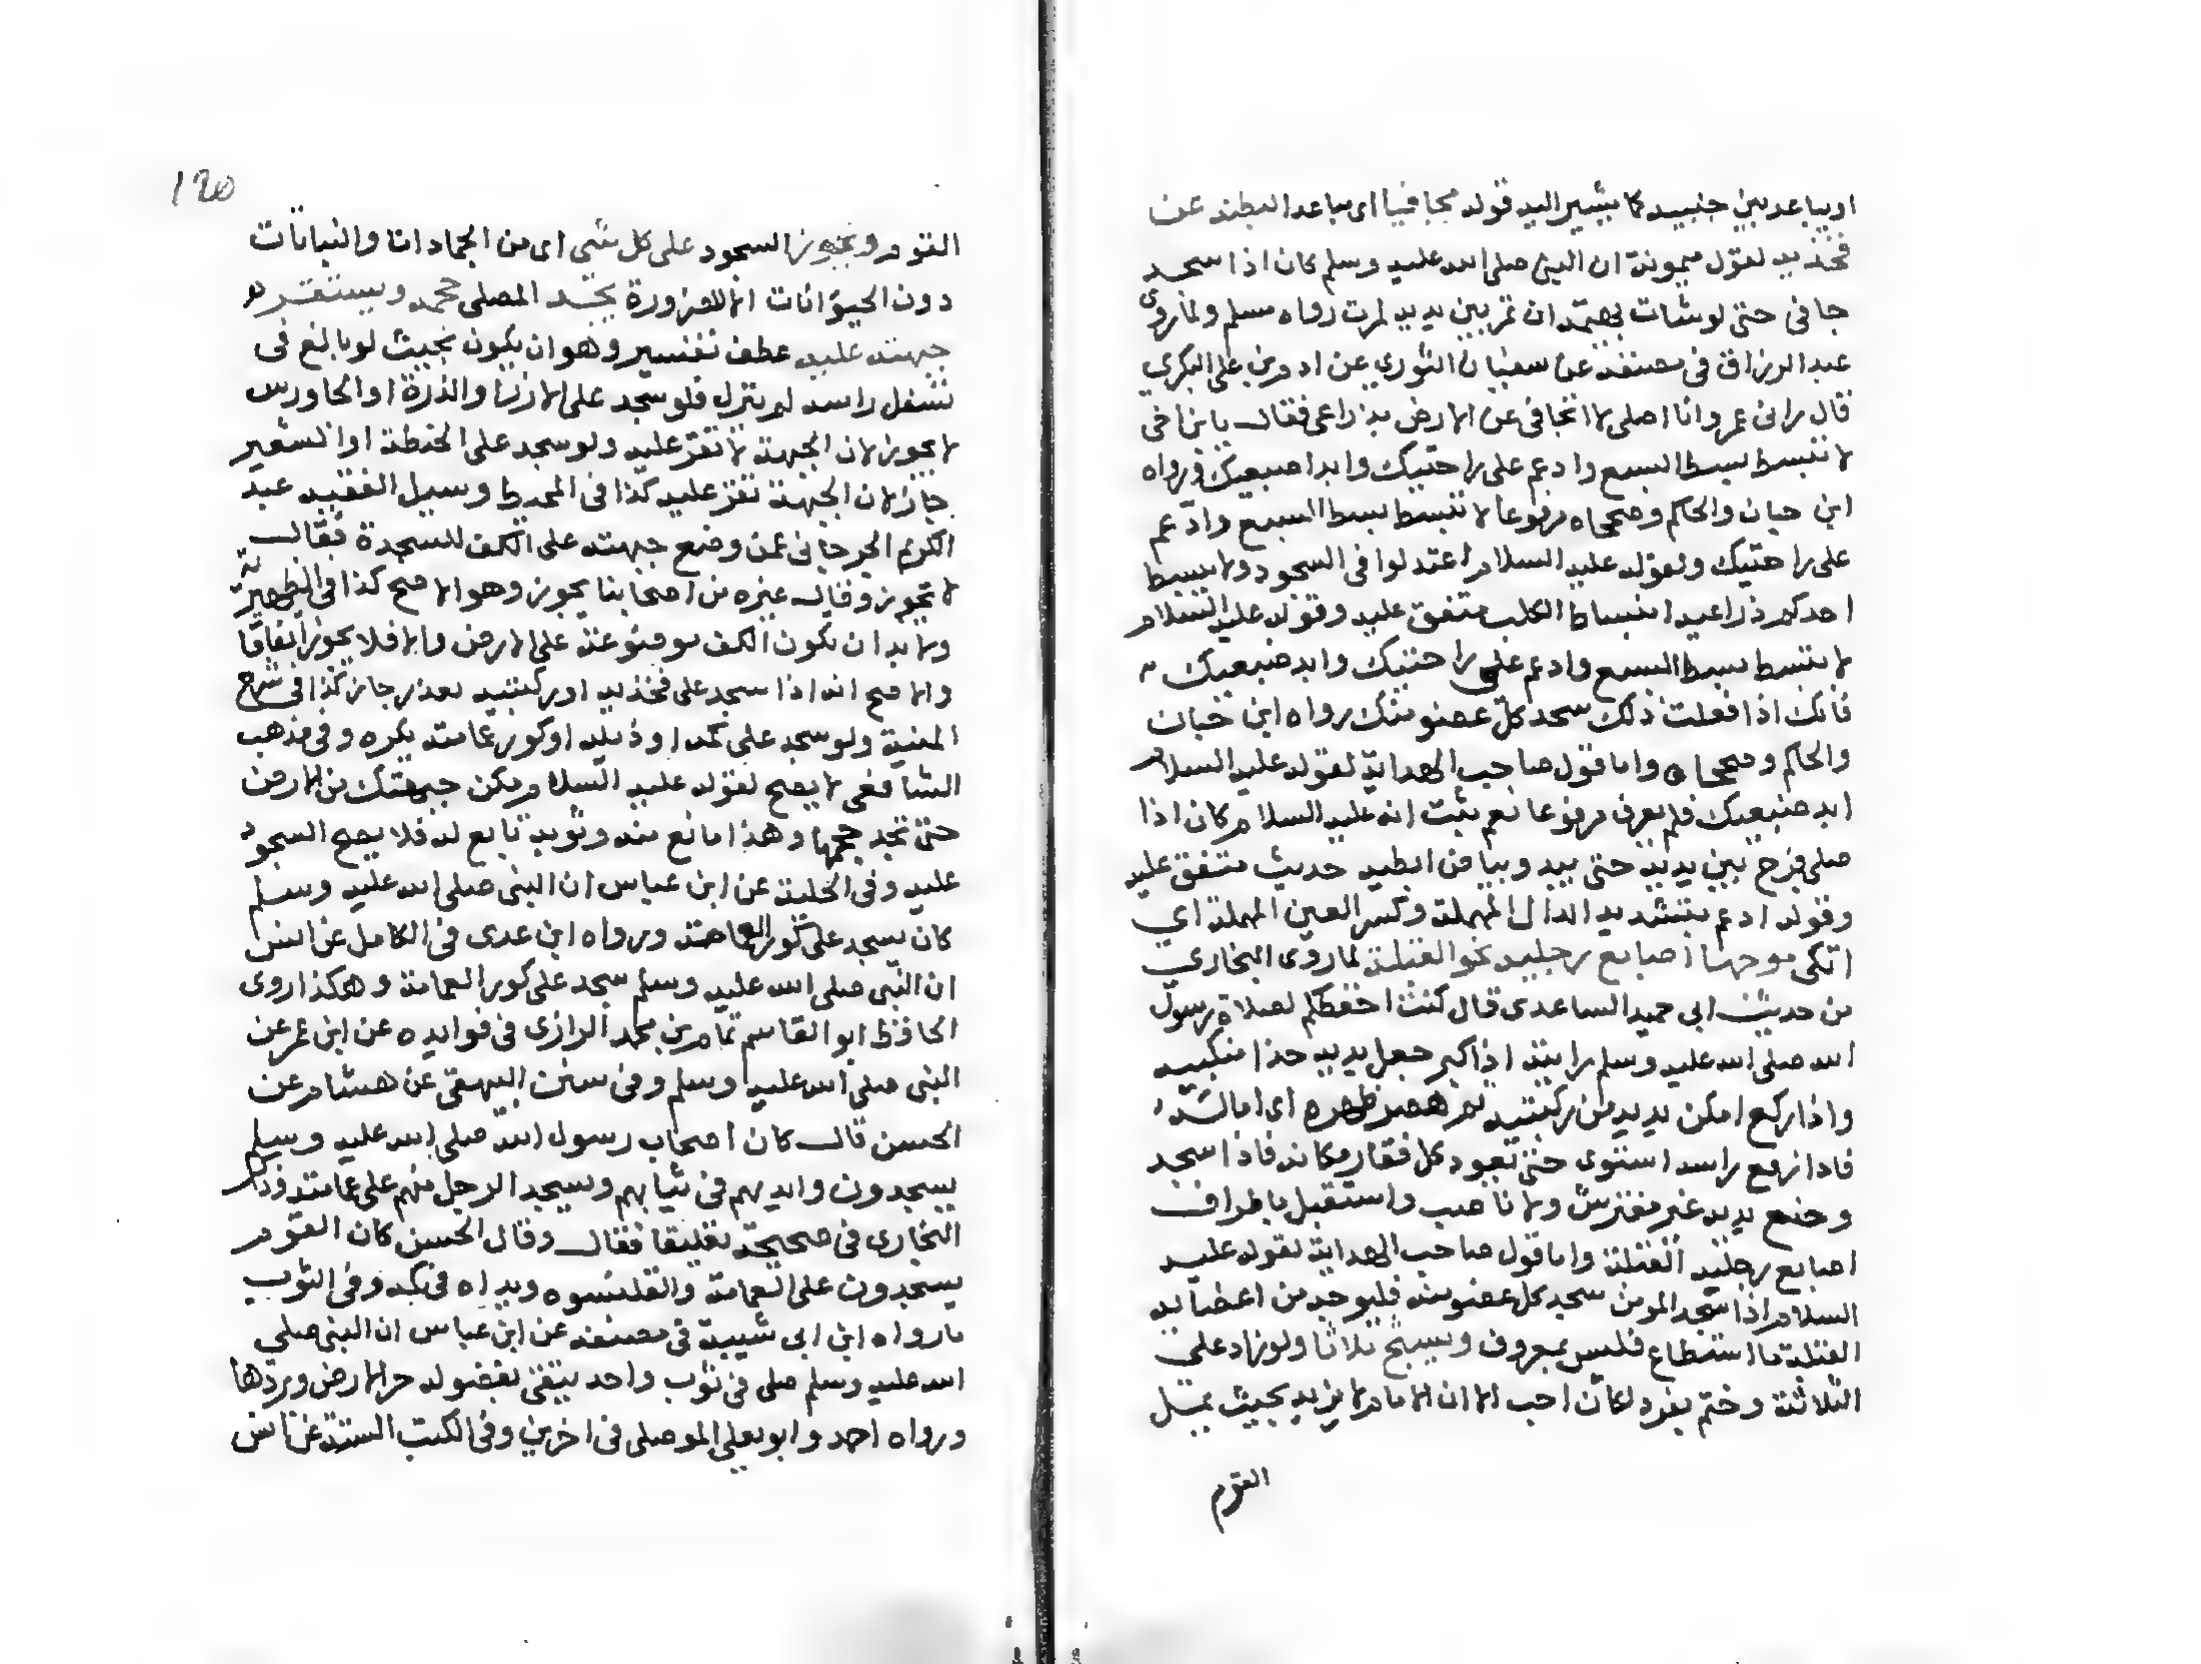 او يباعد بين جنبيه كما يشير اليه قوله مجافيا اى مباعدا لبطنه عن
فخذيه لقول ميمونة ان النبى صلى الله عليه وسلم كان اذا سجد
جافى حتى لو شات بهمة ان تمر بين يديه لمرت رواه مسلم ولما روى
عبد الرزاق فى مصنفه عن سفيان الثوري عن ادم بن على البكري
قال رانى عمر وانا اصلى لا اتجافى عن الارض بذراعى فقال يا بن اخى
لا تبسط بسط السبع وادعم على راحتيك وابد اضبعيك ورواه
ابن حبان والحاكم وصححاه مرفوعا لا تبسط بسط السبع وادعم
على راحتيك ولقوله عليه السلام اعتدلوا فى السجود ولا يبسط
احدكم ذراعيه انبساط الكلب متفق عليه وقوله عليه السلام
لا تبسط بسط السبع وادعم على راحتيك وابد ضبعيك
فانك اذا فعلت ذلك سجد كل عضو منك رواه ابن حبان
والحاكم وصححاه واما قول صاحب الهداية لقوله عليه السلام
ابد ضبعيك فلم يعرف مرفوعا نعم ثبت انه عليه السلام كان اذا
صلى فرج بين يديه حتى يبد وبياض ابطيه حديث متفق عليه
وقوله ادعم بتشديد الدال المهملة وكسر العين المهملة اي
اتكى موجها اصابع رجليه نحو القبلة لما روى البخاري
من حديث ابى حميد الساعدى قال كنت احفظكم لصلاة رسول
الله صلى الله عليه وسلم رايته اذا كبر جعل يديه حذا منكبيه
واذا ركع امكن يديه من ركبتيه ثم هصر ظهره اى اماله
فاذا رفع راسه استوى حتى تعود كل فقار مكانه فاذا سجد
وضع يديه غير مفترش ولا ناصب واستقبل باطراف
اصابع رجليه القبلة واما قول صاحب الهداية لقوله عليه
السلام اذا سجد المومن سجد كل عضو منه فليوجه من اعضايه
القبلة ما استطاع فليس بمعروف ويسبح ثلاثا ولو زاد على
الثلاثة وختم بفرد لكان احب الا ان الامام لا يزيد بحيث يمل
القوم
١٢٥
القوم ويجوز السجود على كل شى اى من الجمادات والنباتات
دون الحيوانات الا للضرورة يجد المصلى حجمه ويستقر
جبهته عليه عطف تفسير وهو ان يكون بحيث لو بالغ فى
تسفل راسه لم ينزل فلو سجد على الارز او الذرة او الجاورس
لا يجوز لان الجبهة لا تقر عليه ولو سجد على الحنطة او الشعير
جاز لان الجبهة تقر عليه كذا فى المحيط وسيل الفقيه عبد
الكريم الجرجانى عمن وضع جبهته على الكف للسجدة فقال
لا يجوز وقال غيره من اصحابنا يجوز وهو الاصح كذا فى الظهيرية
ولا بد ان يكون الكف موضوعة على الارض والا فلا يجوز اتفاقا
والاصح انه اذا سجد على فخذيه او ركبتيه بعذر جاز كذا فى شرح
المنية ولو سجد على كمه او ذيله او كور عمامته يكره وفى مذهب
الشافعى لا يصح لقوله عليه السلام مكن جبهتك من الارض
حتى تجد حجمها وهذا مانع منه وثوبه تابع له فلا يصح السجود
عليه وفى الحلية عن ابن عباس ان النبى صلى الله عليه وسلم
كان يسجد على كور العمامته ورواه ابن عدى فى الكامل عن انس
ان النبى صلى الله عليه وسلم سجد على كور العمامة وهكذا روى
الحافظ ابو القاسم تمام بن محمد الرازى فى فوايده عن ابن عمر عن
النبى صلى الله عليه وسلم وفى سنن البيهقى عن هشام عن
الحسن قال كان اصحاب رسول الله صلى الله عليه وسلم
يسجدون وايديهم فى ثيابهم ويسجد الرجل منهم على عمامته وذكر
البخارى فى صحيحه تعليقا فقال وقال الحسن كان القوم
يسجدون على العمامة والقلنسوه ويداه فى كمه وفى الثوب
ما رواه ابن ابى شيبة فى مصنفه عن ابن عباس ان النبى صلى
الله عليه وسلم صلى فى ثوب واحد يتقى بفضوله حر الارض وبردها
ورواه احمد وابو يعلى الموصلى فى اخرين وفى الكتب الستة عن انس